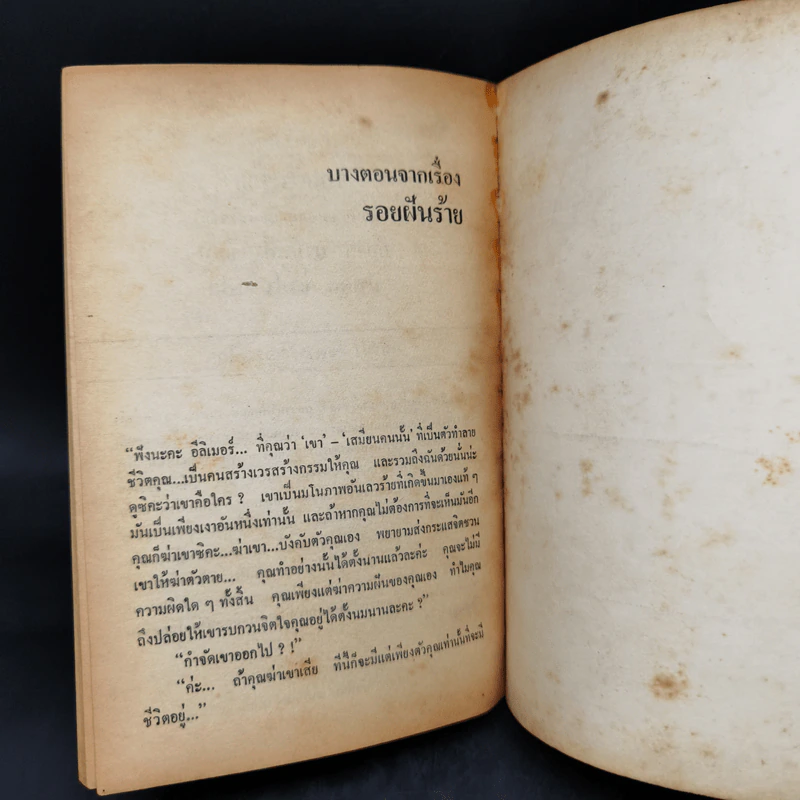 บางตอนจากเรื่อง
รอยฝันร้าย
“ฟังนะคะ อีลิเมอร์... ที่คุณว่า ‘เขา’ – ‘เสมียนคนนั้น’ ที่เป็นตัวทำลาย
ชีวิตคุณ...เป็นคนสร้างเวรสร้างกรรมให้คุณ และรวมถึงฉันด้วยนั่นน่ะ
ดูซิคะว่าเขาคือใคร ? เขาเป็นมโนภาพอันเลวร้ายที่เกิดขึ้นมาเองแท้ ๆ
มันเป็นเพียงเงาอันหนึ่งเท่านั้น และถ้าหากคุณไม่ต้องการที่จะเห็นมันอีก
คุณก็ฆ่าเขาซิคะ...ฆ่าเขา...บังคับตัวคุณเอง พยายามส่งกระแสจิตชวน
เขาให้ฆ่าตัวตาย... คุณทำอย่างนั้นได้ตั้งนานแล้วละค่ะ คุณจะไม่มี
ความผิดใด ๆ ทั้งสิ้น คุณเพียงแต่ฆ่าความฝันของคุณเอง ทำไมคุณ
ถึงปล่อยให้เขารบกวนจิตใจคุณอยู่ได้ตั้งนมนานละคะ ?”
“กำจัดเขาออกไป ? !”
“ค่ะ... ถ้าคุณฆ่าเขาเสีย ทีนี้ก็จะมีแต่เพียงตัวคุณเท่านั้นที่จะมี
ชีวิตอยู่...”